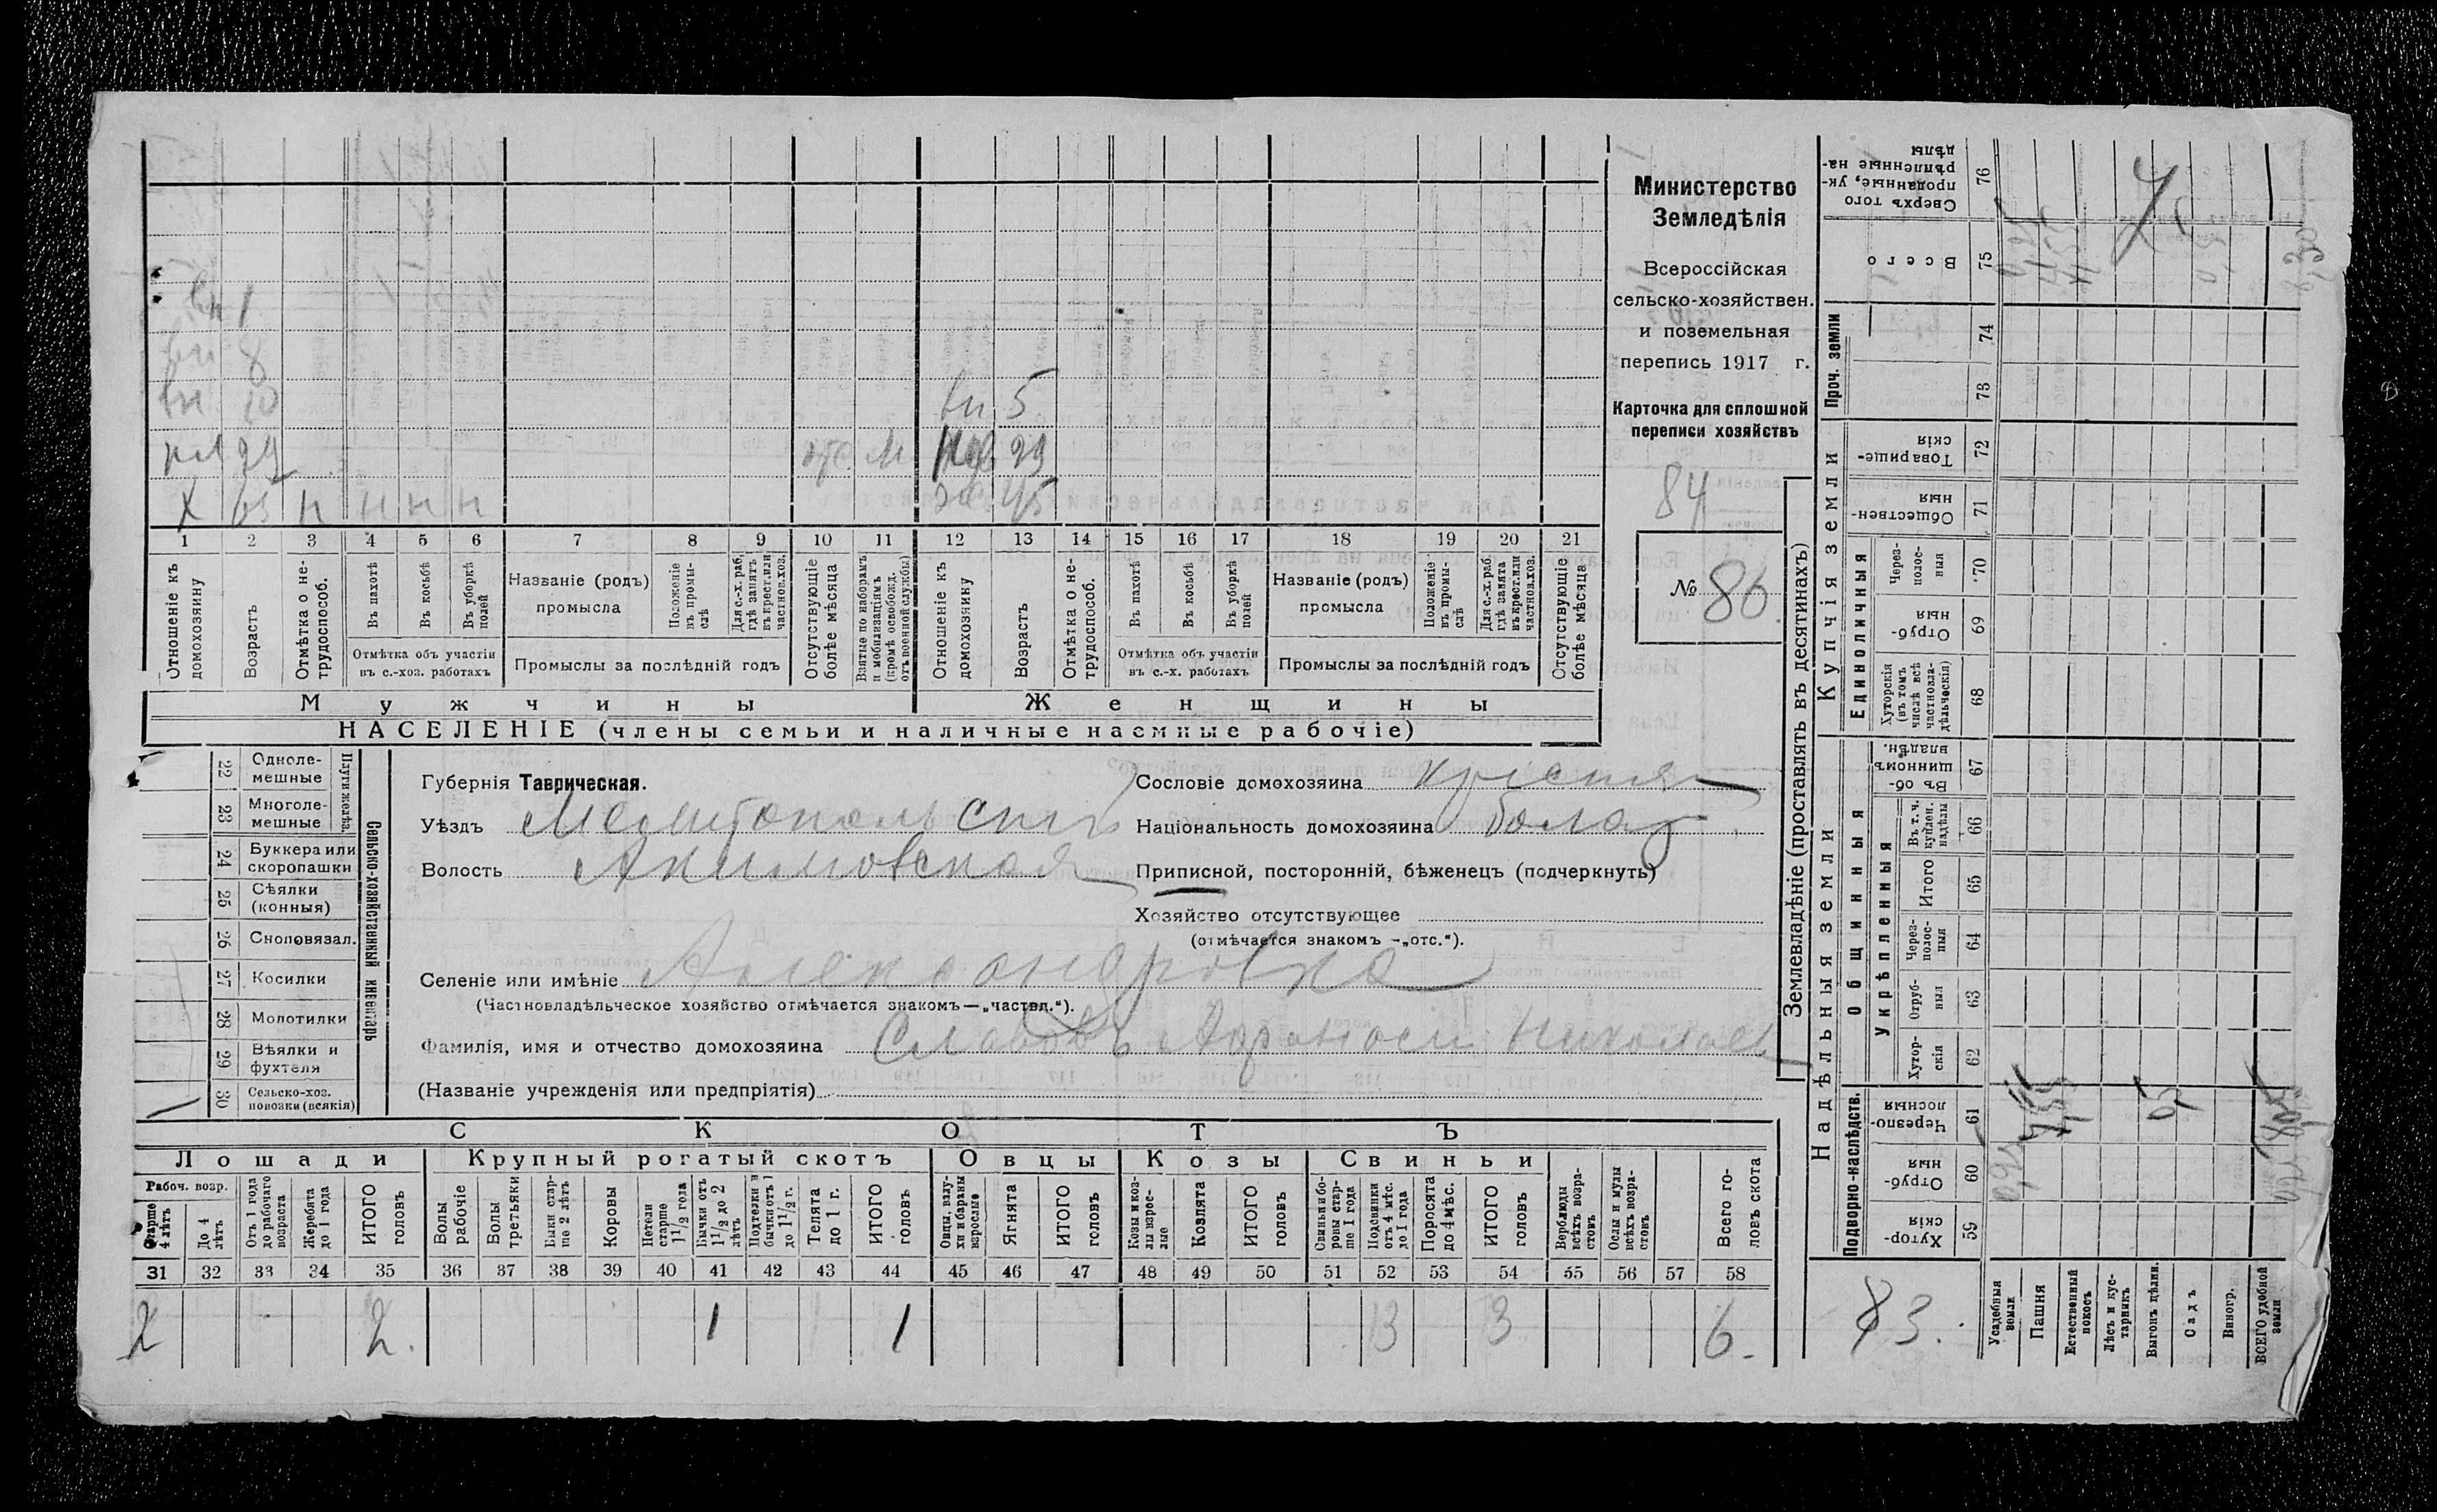 Министерство
Земледѣлія
Всероссійская
сельско-хозяйствен.
и поземельная
перепись 1917 г.
Карточка для сплошной
переписи хозяйствъ
84
№ 86.
вн 1
вн 8
вн 10
вн 5
29
М 29
Х 65 н н н н
45
1 2 3 4 5 6 7 8 9 10 11 12 13 14 15 16 17 18 19 20 21
Отношеніе къ домохозяину
Возрастъ
Отмѣтка о не-трудоспособ.
Въ пахотѣ
Въ косьбѣ
Въ уборкѣ полей
Отмѣтка объ участіи въ с.-хоз. работахъ
Названіе (родъ) промысла
Положеніе въ промы-слѣ
Для с.-х. раб. гдѣ занятъ въ крест. или частнов. хоз.
Промыслы за послѣдній годъ
Отсутствующіе болѣе мѣсяца
Взятые по наборамъ и мобилизаціямъ (кромѣ освобожд. отъ военной службы)
Отношеніе къ домохозяину
Возрастъ
Отмѣтка о не-трудоспособ.
Въ пахотѣ
Въ косьбѣ
Въ уборкѣ полей
Отмѣтка объ участіи въ с.-х. работахъ
Названіе (родъ) промысла
Положеніе въ промы-слѣ
Для с.-х. раб. гдѣ занята въ крест. или частнов. хоз.
Промыслы за послѣдній годъ
Отсутствующіе болѣе мѣсяца
Мужчины
Женщины
НАСЕЛЕНІЕ (члены семьи и наличные наемные рабочіе)
Сельско-хозяйственный инвентарь
Плуги желѣз.
22 Одноле-мешные
23 Многоле-мешные
24 Буккера или скоропашки
25 Сѣялки (конныя)
26 Сноповязал.
27 Косилки
28 Молотилки
29 Вѣялки и фухтеля
30 Сельско-хоз. повозки (всякія)
Губернія Таврическая.
Уѣздъ Мелитопольскій
Волость Акимовская
Селеніе или имѣніе Александровка
(Частновладѣльческое хозяйство отмѣчается знакомъ—„частвл.“).
Фамилія, имя и отчество домохозяина Славовъ Афонасій Николаев
(Названіе учрежденія или предпріятія)
Сословіе домохозяина крестян
Національность домохозяина болгар
Приписной, посторонній, бѣженецъ (подчеркнуть)
Хозяйство отсутствующее
(отмѣчается знакомъ -„отс.“).
СКОТЪ
Лошади Крупный рогатый скотъ Овцы Козы Свиньи
Рабоч. возр.
Старше 4 лѣтъ
До 4 лѣтъ
Отъ 1 года до рабочаго возраста
Жеребята до 1 года
ИТОГО головъ
Волы рабочіе
Волы третьяки
Быки стар-ше 2 лѣтъ
Коровы
Нетели старше 1 1/2 года
Бычки отъ 1 1/2 до 2 лѣтъ
Подтелки и бычки отъ 1 до 1 1/2 г.
Телята до 1 г.
ИТОГО головъ
Овцы, валу-хи и бараны взрослые
Ягнята
ИТОГО головъ
Козы и коз-лы взрос-лые
Козлята
ИТОГО головъ
Свиньи и бо-ровы стар-ше 1 года
Подсвинки отъ 4 мѣс. до 1 года
Поросята до 4 мѣс.
ИТОГО головъ
Верблюды всѣхъ возра-стовъ
Ослы и мулы всѣхъ возра-стовъ
Всего го-ловъ скота
31 32 33 34 35 36 37 38 39 40 41 42 43 44 45 46 47 48 49 50 51 52 53 54 55 56 57 58
2 2. 1 1 3 3 6.
Землевладѣніе (проставлять въ десятинахъ)
Надѣльныя земли
Подворно-наслѣдств.
59 Хутор-скія
60 Отруб-ныя
61 Черезпо-лосныя
Общинныя
Укрѣпленныя
62 Хутор-скія
63 Отруб-ныя
64 Через-полос-ныя
65 Итого
66 Въ т. ч. куплен. надѣлы
67 Въ об-щинномъ владѣн.
Купчія земли
Единоличныя
68 Хуторскія (въ томъ числѣ всѣ частновла-дѣльческія)
69 Отруб-ныя
70 Через-полос-ныя
71 Обществен-ныя
72 Товарище-скія
Проч. земли
73
74
75 Всего
76 Сверхъ того проданные, ук-рѣпленные на-дѣлы
83.
Усадебныя земли
Пашня
Естественный покосъ
Лѣсъ и кус-тарникъ
Выгонъ цѣлин.
Садъ
Виногр.
ВСЕГО удобной земли